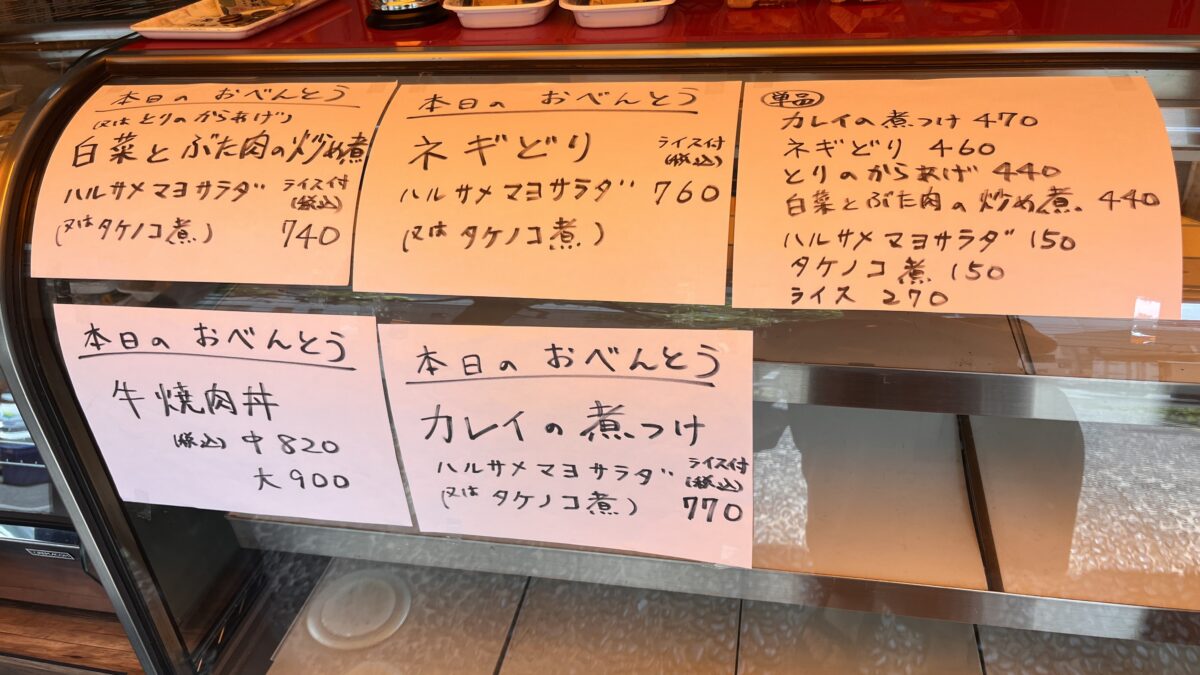 本日の おべんとう
(又は とりのからあげ)
白菜と ぶた肉の炒め煮
ハルサメマヨサラダ ライス付
(税込)
(又は タケノコ煮) 740
本日の おべんとう
ネギどり ライス付
(税込)
ハルサメマヨサラダ 760
(又は タケノコ煮)
単品
カレイの煮つけ 470
ネギどり 460
とりのからあげ 440
白菜とぶた肉の炒め煮 440
ハルサメマヨサラダ 150
タケノコ煮 150
ライス 270
本日の おべんとう
牛焼肉丼
(税込) 中820
大900
本日の おべんとう
カレイの煮つけ
ハルサメマヨサラダ ライス付
(税込)
(又は タケノコ煮) 770